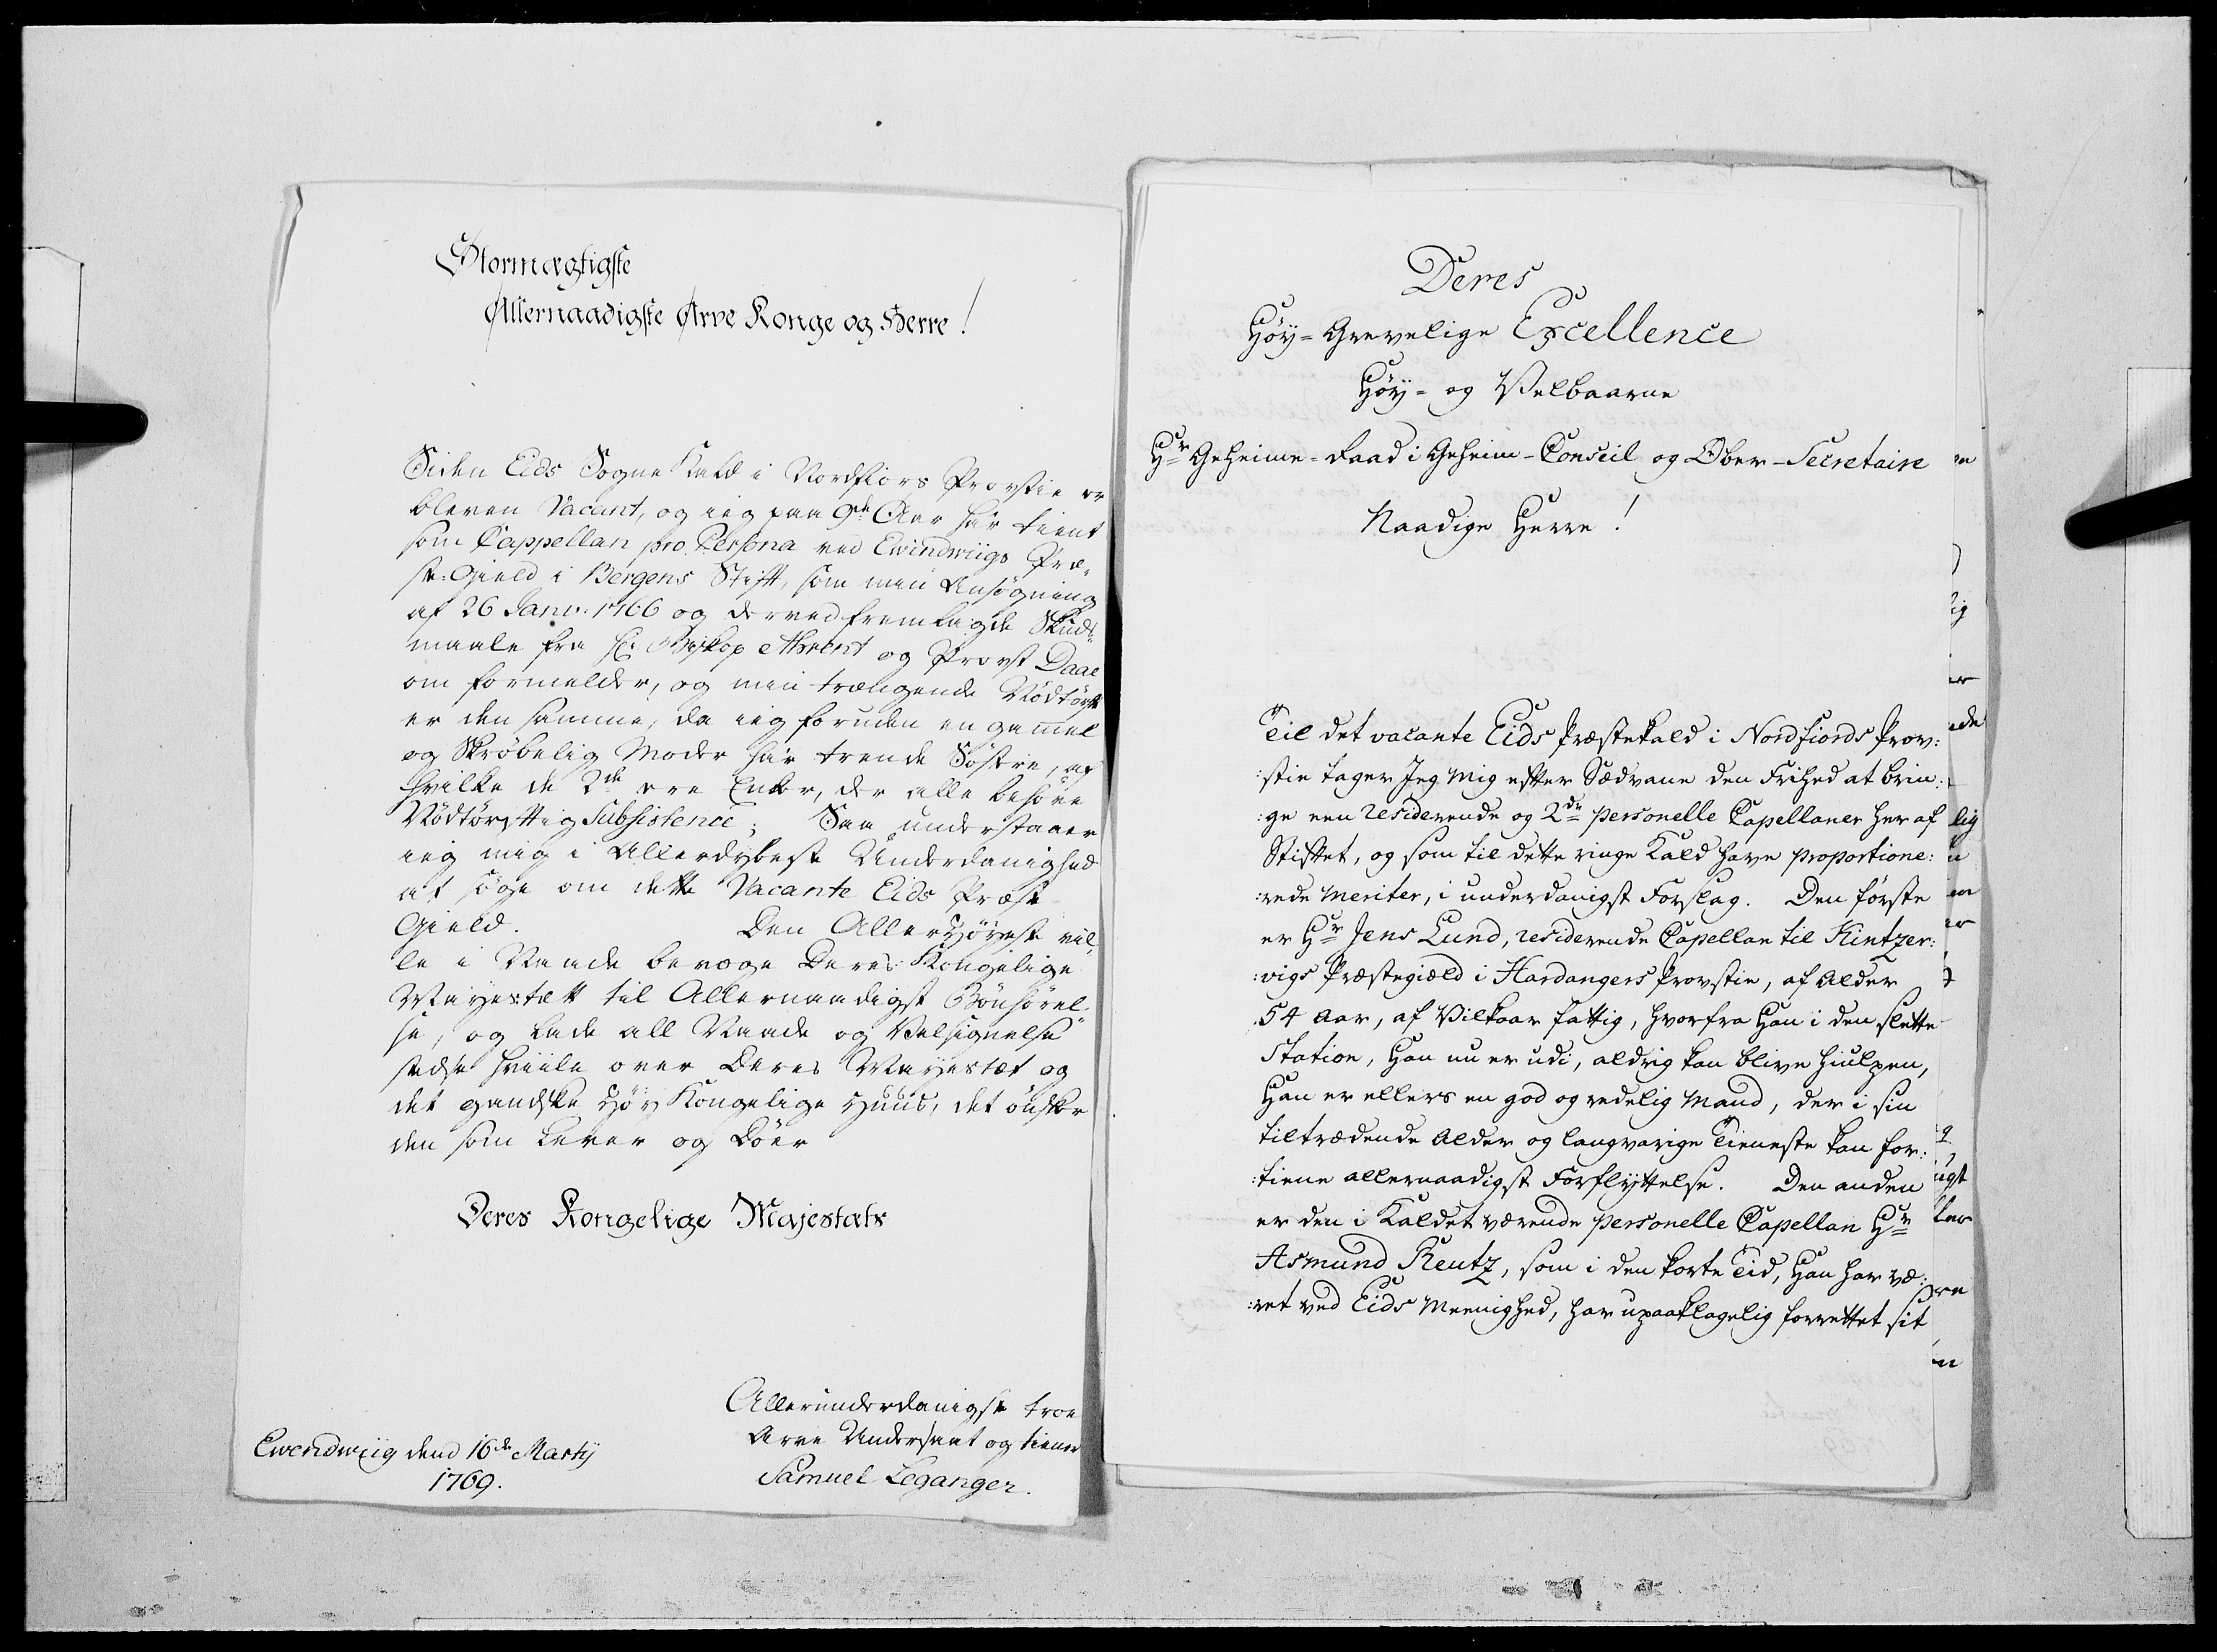 Stormægtigste
Allernaadigste Arve Konge og Herre!
Siden Eids Sogne Kald i Nordfiors Provstie er
bleven Vacant, og ieg paa 9de Aar har tient
som Cappellan pro Persona ved Ewindwiigs Præ,
ste: Gield i Bergens Stift, som min Ansøgning
af 26 Janv: 1766 og derved fremlagde Skuds
maale fra Hr: Biskop Ahrent og Provst Daae
om formelder, og min trængende Nødtørft
er den samme, da ieg foruden en gammel
og Skrøbelig Moder har trende Søstre, af
hvilke de 2de ere Enker, der alle behøve
Nødtørfttig Subsistence; Saa understaaer
ieg mig i Allerdybeste Underdanighed
at søge om dette Vacante Eids Præste
Gield. Den Allerhøyeste vil
le i Naade bevæge Deres Kongelige
Mayestætt til Allernaadigst Bønhørel
se, og lade all Naade og Velsignelse
stedse hviile over Deres Mayestæt og
det gandske Høy Kongelige Huus, det ønsker
den som lever og døer
Deres Kongelige Majestæts
Allerunderdanigste troe
Arve Undersaat og tiener
Samuel Leganger.
Ewendwiig dend 16de Martij
1769.
Deres
Høy=Grevelige Excellence
Høy= og Velbaarne
Hr Geheime=Raad i Geheim-Conseil og Ober-Secretaire
Naadige Herre!
Til det vacante Eids Præstekald i Nordfiords Prov:
:stie tager Jeg mig effter Sædvane den Frihed at brin:
:ge een residerende og 2de personelle Capellaner her af
Stifftet, og som til dette ringe Kald have proportione:
:rede meriter, i underdanigst Forslag. Den første
er Hr Jens Lund, residerende Capellan til Kintzer:
:vigs Præstegiæld i Hardangers Provstie, af Alder
54 Aar, af Vilkaar fattig, hvorfra Han i den slette
Station, Han nu er udi, aldrig kan blive hiulpen,
Han er ellers en god og redelig Mand, der i sin
tiltrædende Alder og langvarige Tieneste kan for:
:tiene allernaadigst Forflyttelse. Den anden
er den i Kaldet værende personelle Capellan Hr
Asmund Rentz, som i den korte Tid, Han har væ:
:ret ved Eids Meenighed, har upaaklagelig forrettet sit